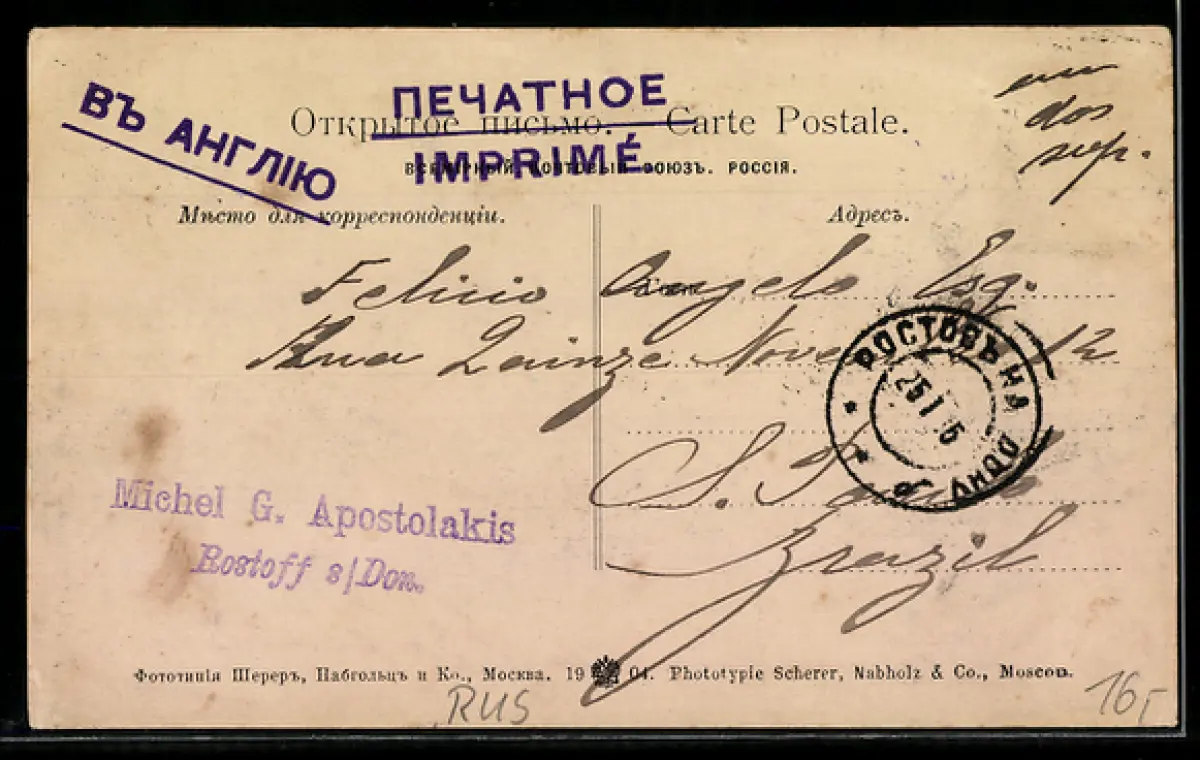 ВЪ АНГЛIЮ
ПЕЧАТНОЕ
Открытое письмо. — Carte Postale.
IMPRIMÉ
ВСЕМIРНЫЙ ПОЧТОВЫЙ СОЮЗЪ. РОССIЯ.
dos
Мѣсто для корреспонденцiи.
Адресъ.
Felicio Angelo Esq.
Rua Quinze Nove 12
S. Paulo
Brazil
РОСТОВЪ НА ДОНУ
25 1 5
Michel G. Apostolakis
Rostoff s/Don.
Фототипiя Шереръ, Набгольцъ и Ко., Москва. 1904. Phototypie Scherer, Nabholz & Co., Moscou.
RUS
16,-